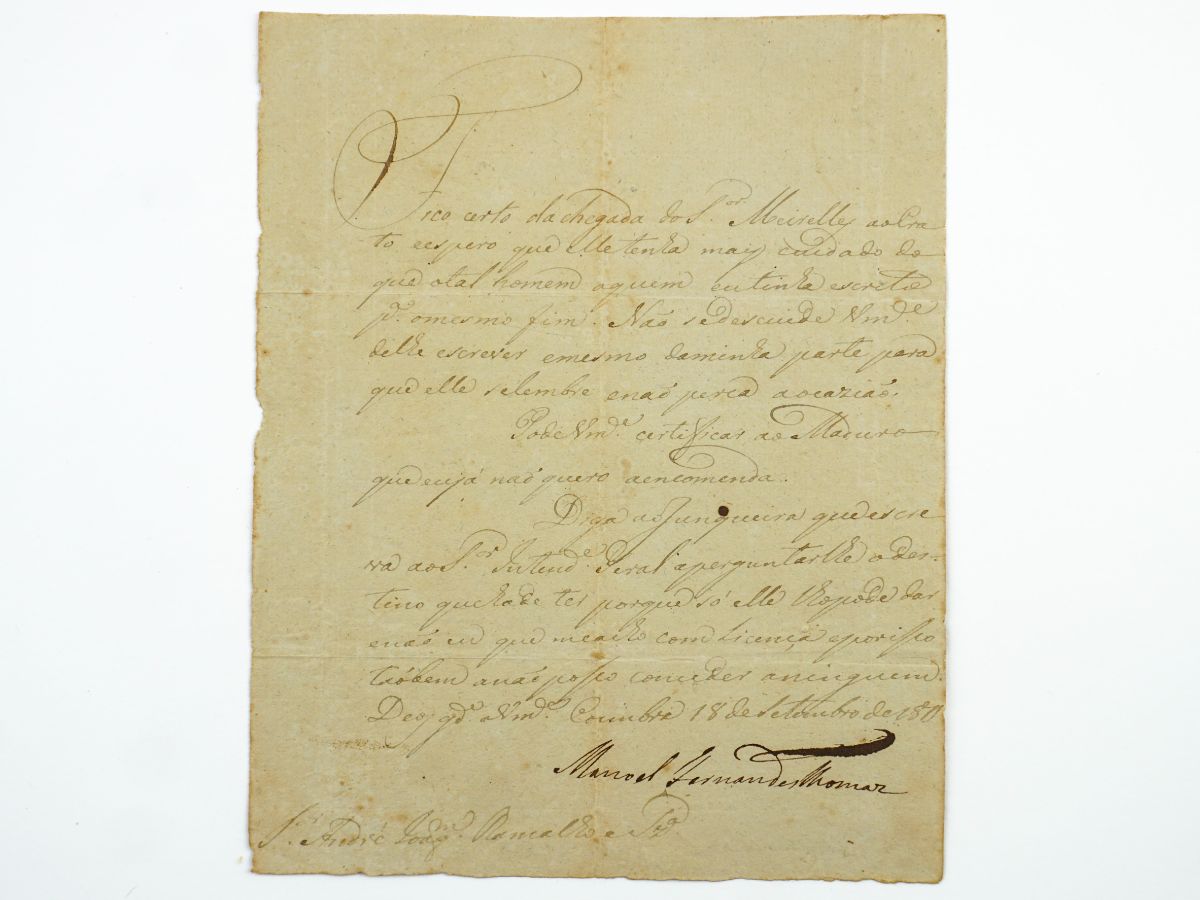 Fico certo da chegada do S.or Meirelles ao Cra
to e espero que elle tenha mais cuidado do
que o tal homem a quem eu tinha escreto
p.a o mesmo fim. Não se descuide Vm.ce
de lhe escrever e mesmo da minha parte para
que elle se lembre e naõ perca a ocaziaõ.
Pode Vm.ce certificar ao Maduro
que eu já naõ quero a encomenda.
Diga ao Junqueira que escre
va ao S.or Intend.e Geral a perguntarlhe o des-
tino que hade ter porque só elle lho pode dar
e naõ eu que me acho com Licença e por isso
taõbem a naõ posso conceder a ninguem.
Deos g.de a Vm.ce Coimbra 18 de Setembro de
Manoel Fernandes Thomaz
S.r André Joaq.m Ramalho e